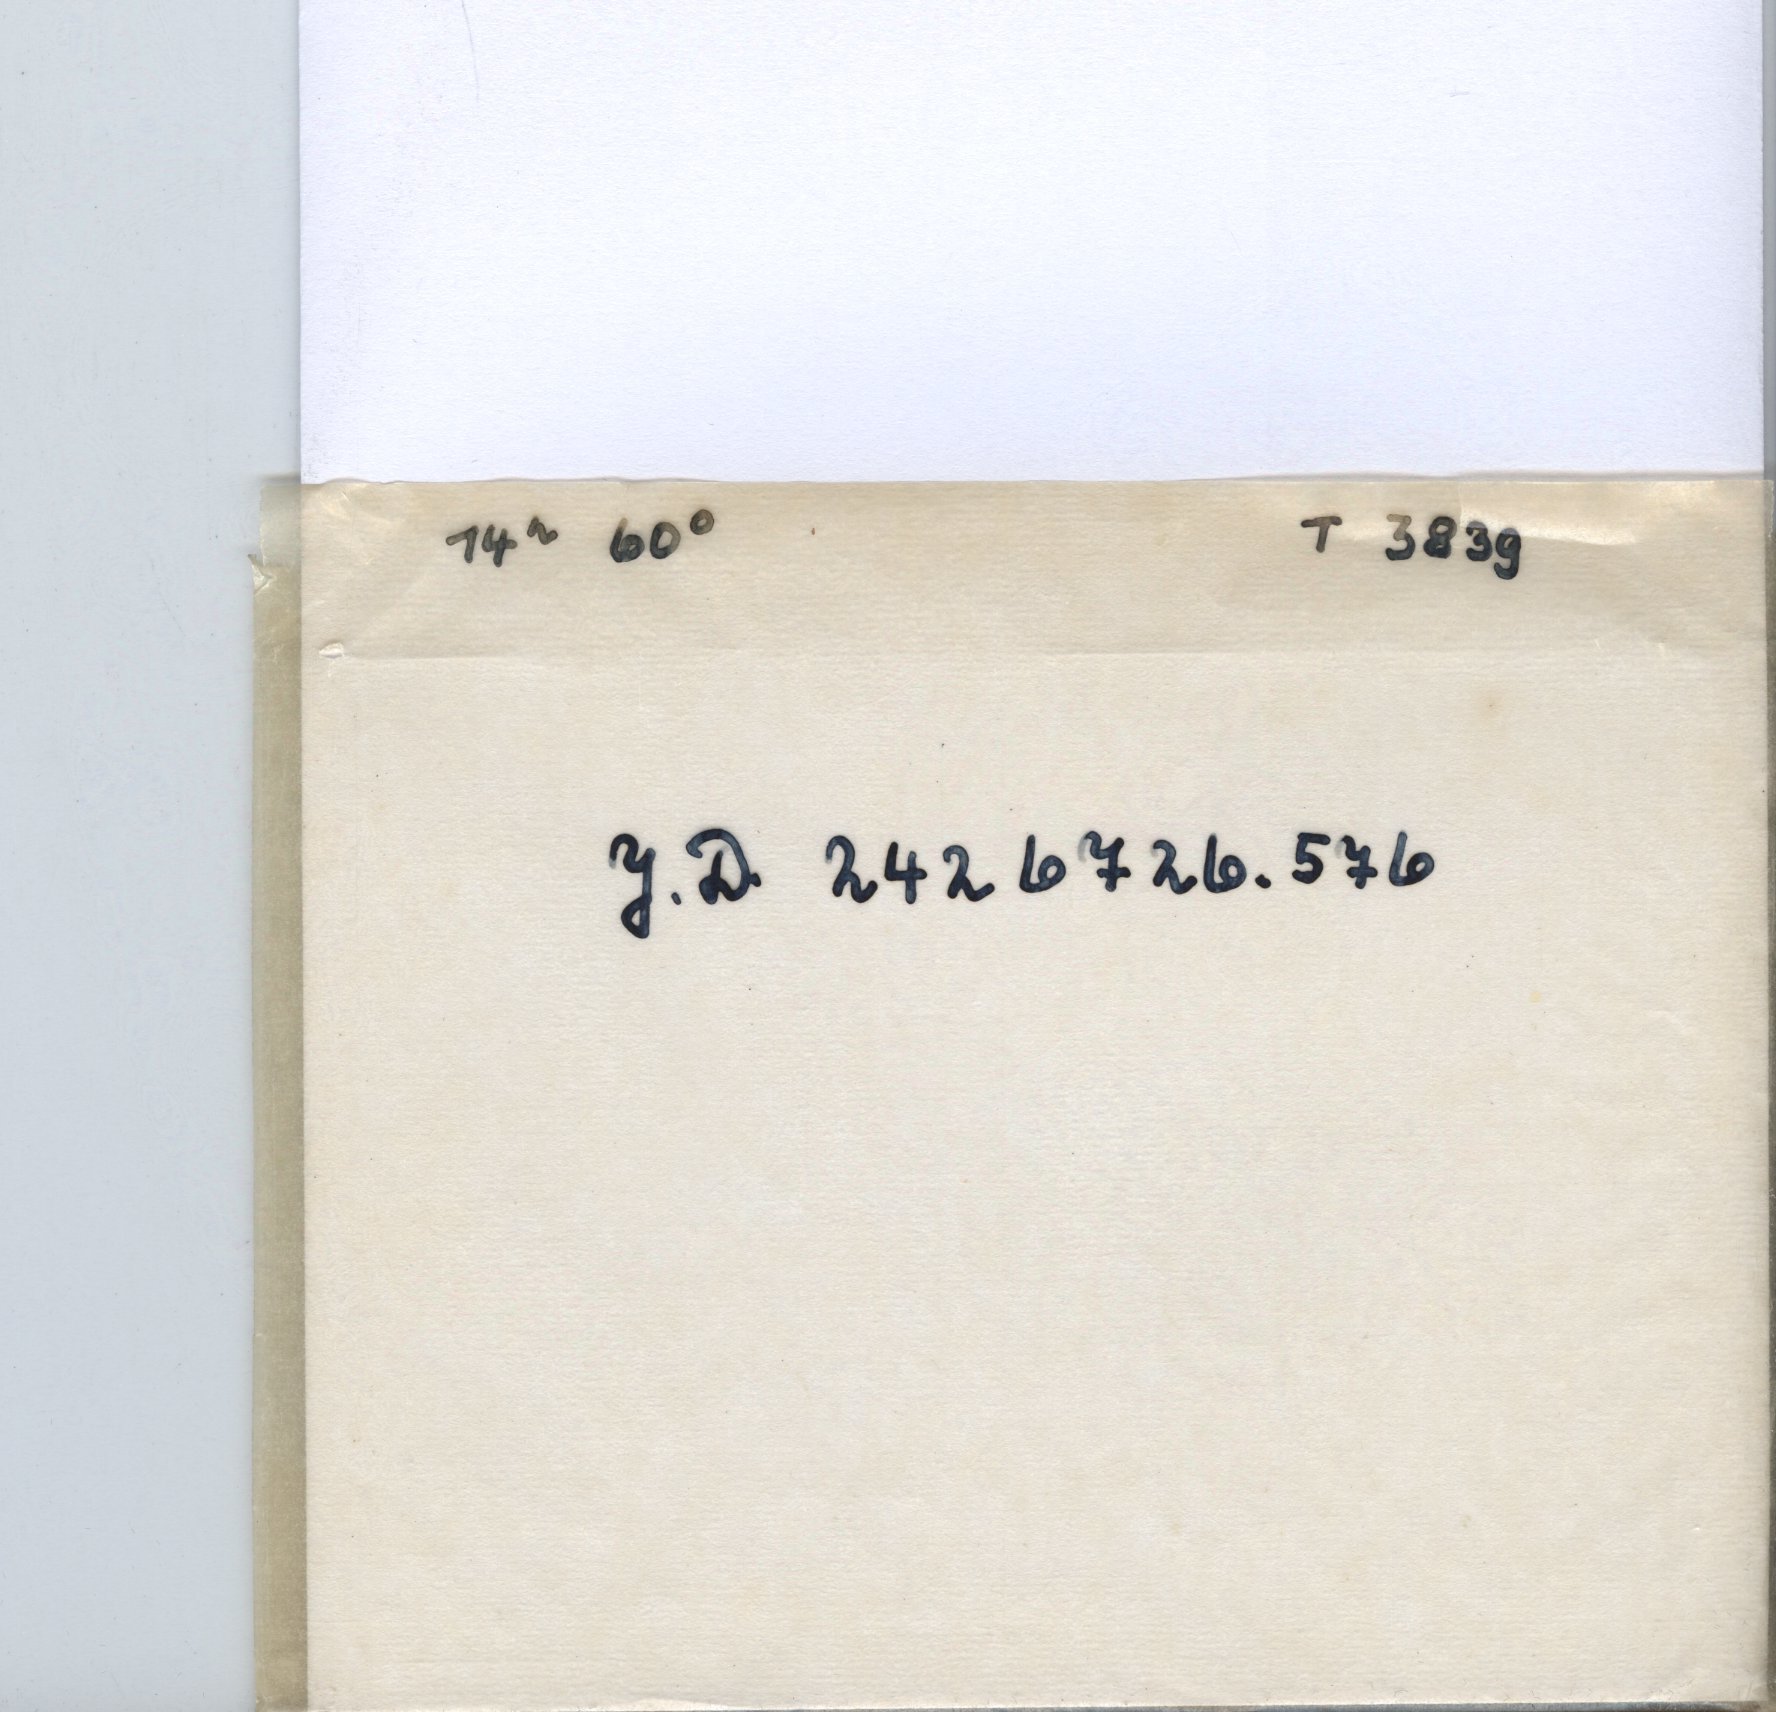 14ʰ 60° T 3839
J.D. 2426726.576